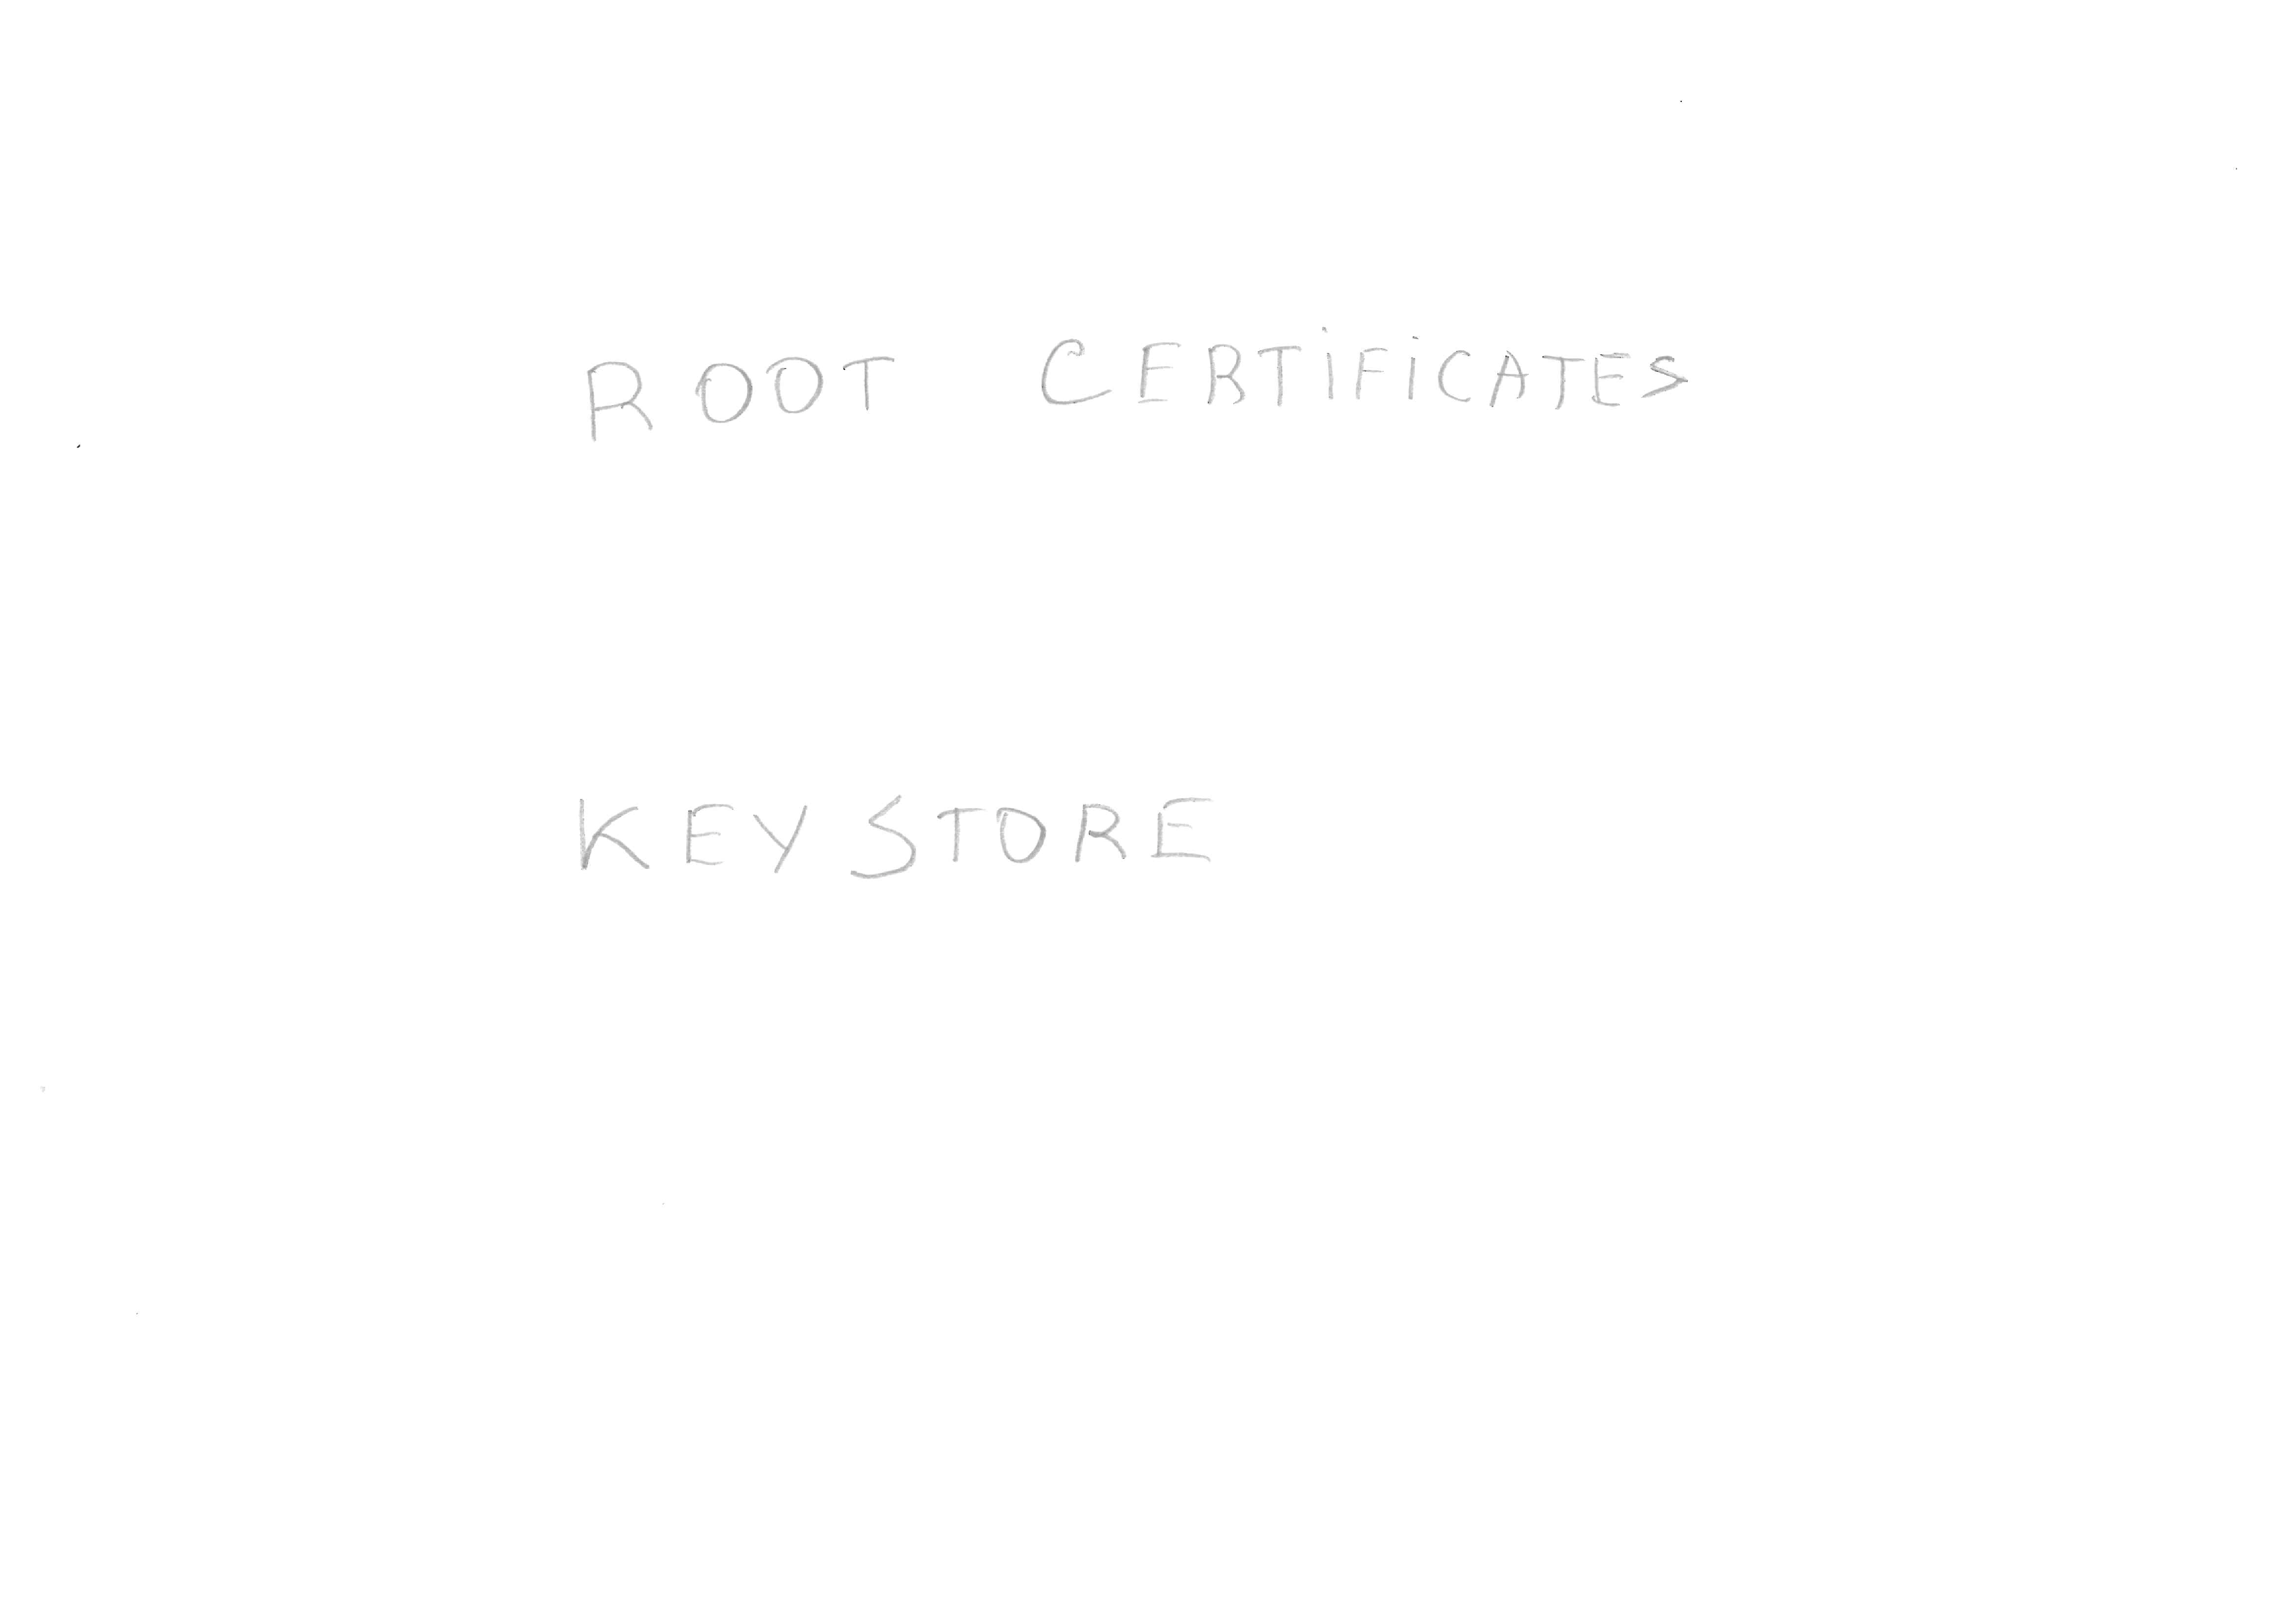 ROOT CERTiFiCATES
KEYSTORE